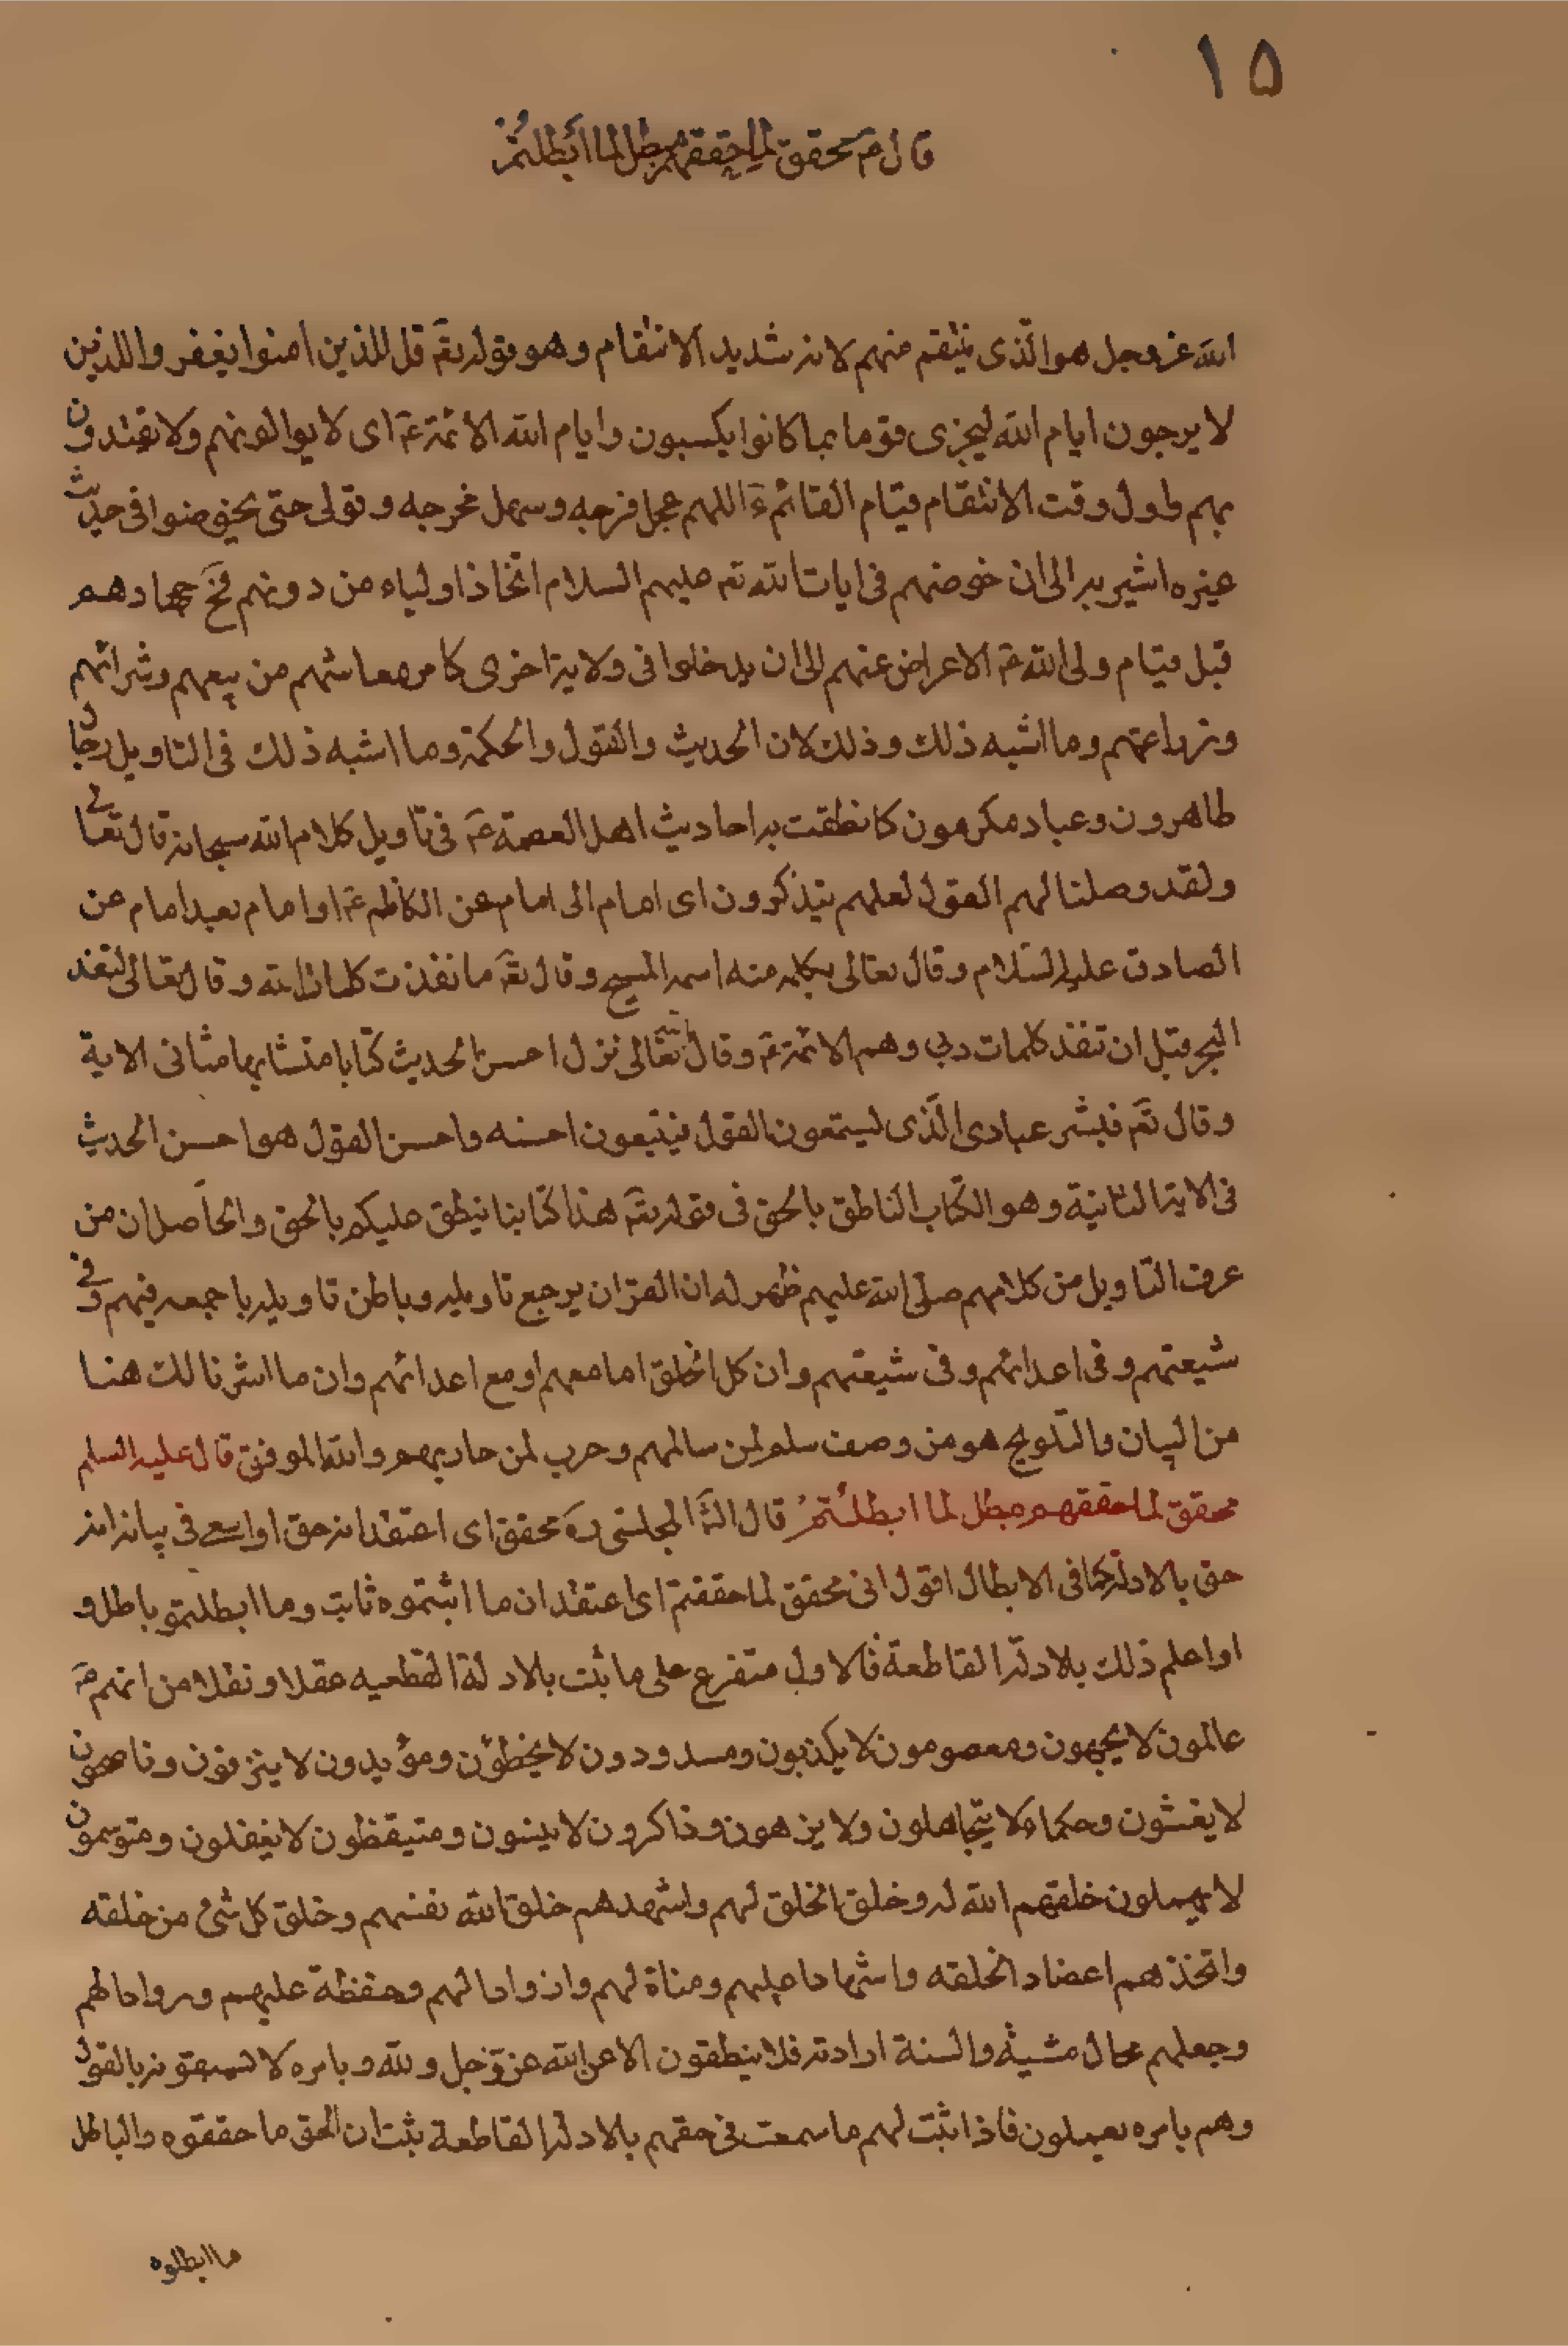 ١٥
قال ع محقق لما حققتم مبطل لما أبطلتُمْ
الله عز وجل هو الذى ينتقم منهم لانه شديد الانتقام وهو قوله تعَ قل للذين امنوا يغفروا للذين
لا يرجون ايام الله ليجزى قوما بما كانوا يكسبون وايام الله الائمة عَ اى لا يوالونهم ولا يقتدون
بهم واول وقت الانتقام قيام القائم عَ اللهم عجل فرجه وسهل مخرجه وقولى حتى يخوضوا فى حديث
غيره اشير به الى ان خوضهم فى ايات الله تعَ عليهم السلام اتخاذ اولياء من دونهم فخَ جهادهم
قبل قيام ولى الله عَ الاعراض عنهم الى ان يدخلوا فى ولاية اخرى كامر معاشهم من بيعهم وشرائهم
وزراعتهم وما اشبه ذلك وذلك لان الحديث والقول والحكمة وما اشبه ذلك فى التاويل رجال
طاهرون وعباد مكرمون كما نطقت به احاديث اهل العصمة عَ فى تاويل كلام الله سبحانه قال تعالى
ولقد وصلنا لهم القول لعلهم يتذكرون اى امام الى امام عن الكاظم عَ او امام بعد امام عن
الصادق عليه السّلام وقال تعالى بكلمة منه اسمه المسيح وقال تعَ ما نفذت كلمات الله وقال تعالى لنفد
البحر قبل ان تنفذ كلمات ربي وهم الائمة عَ وقال تعالى نزل احسن الحديث كتابا متشابها مثانى الاية
وقال تعَ فبشر عبادى الّذى ليستمعون القول فيتبعون احسنه واحسن القول هو احسن الحديث
فى الاية الثانية وهو الكتاب الناطق بالحق فى قوله تعَ هذا كتابنا ينطق عليكم بالحق والحاصل ان من
عرف التاويل من كلامهم صلى الله عليهم ظهر له ان القران يرجع تاويله وباطن تاويله باجمعه فيهم وفى
شيعتهم وفى اعدائهم وفى شيعتهم وان كل الخلق اما معهم او مع اعدائهم وان ما اشرنا لك هنا
من البيان والتلويح هو من وصف سلم لمن سالمهم وحرب لمن حاربهم والله الموفق قال عليه السلم
محقق لما حققتم مبطل لما ابطلتُمْ قال الشَّ المجلسى رهَ محقق اى اعتقد انه حق او اسعى فى بيان انه
حق بالادلة كما فى الابطال اقول انى محقق لما حققتم اى اعتقد ان ما اثبتموه ثابت وما ابطلتموا باطل و
او اعلم ذلك بالادلّة القاطعة فالاول متفرع على ما ثبت بالادلة القطعيه عقلا ونقلا من انهم عَ
عالمون لا يجهلون ومعصومون لا يكذبون ومسدودون لا يخطؤن ومؤيدون لا ينزفون وناصحون
لا يغشون وحكماء لا يتجاهلون ولا يزهون وذاكرون لا ينسون ومتيقظون لا يغفلون ومتوسمون
لا يهملون خلقهم الله له وخلق الخلق لهم واشهدهم خلق الله نفسهم وخلق كل شئ من خلقه
واتخذهم اعضادا لخلقه واشهادا عليهم ومناة لهم واذوادا لهم وحفظة عليهم وروادا لهم
وجعلهم محال مشيته والسنة ارادته فلا ينطقون الا عن الله عزّ وجل ولله وبامره لا يسبقونه بالقول
وهم بامره يعملون فاذا ثبت لهم ما سمعت فى حقهم بالادلة القاطعة ثبت ان الحق ما حققوه والباطل
ما ابطلوه